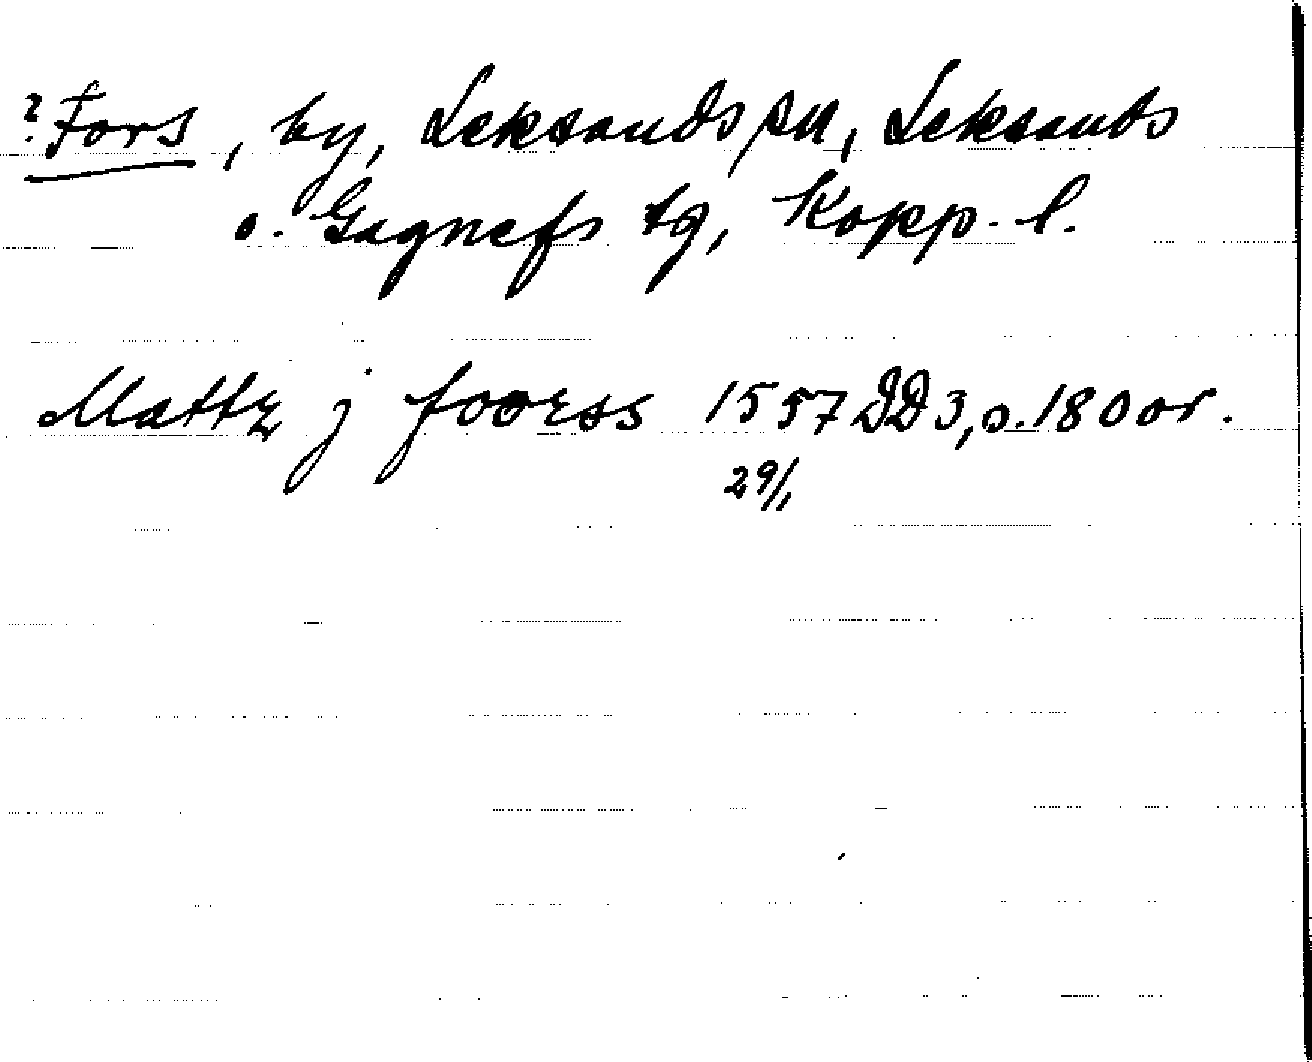 ? Fors, by, Leksands sn, Leksands
o. Gagnefs tg, Kopp. l.
Mattz j foorss 1557 DD 3, s. 180 or.
29/1